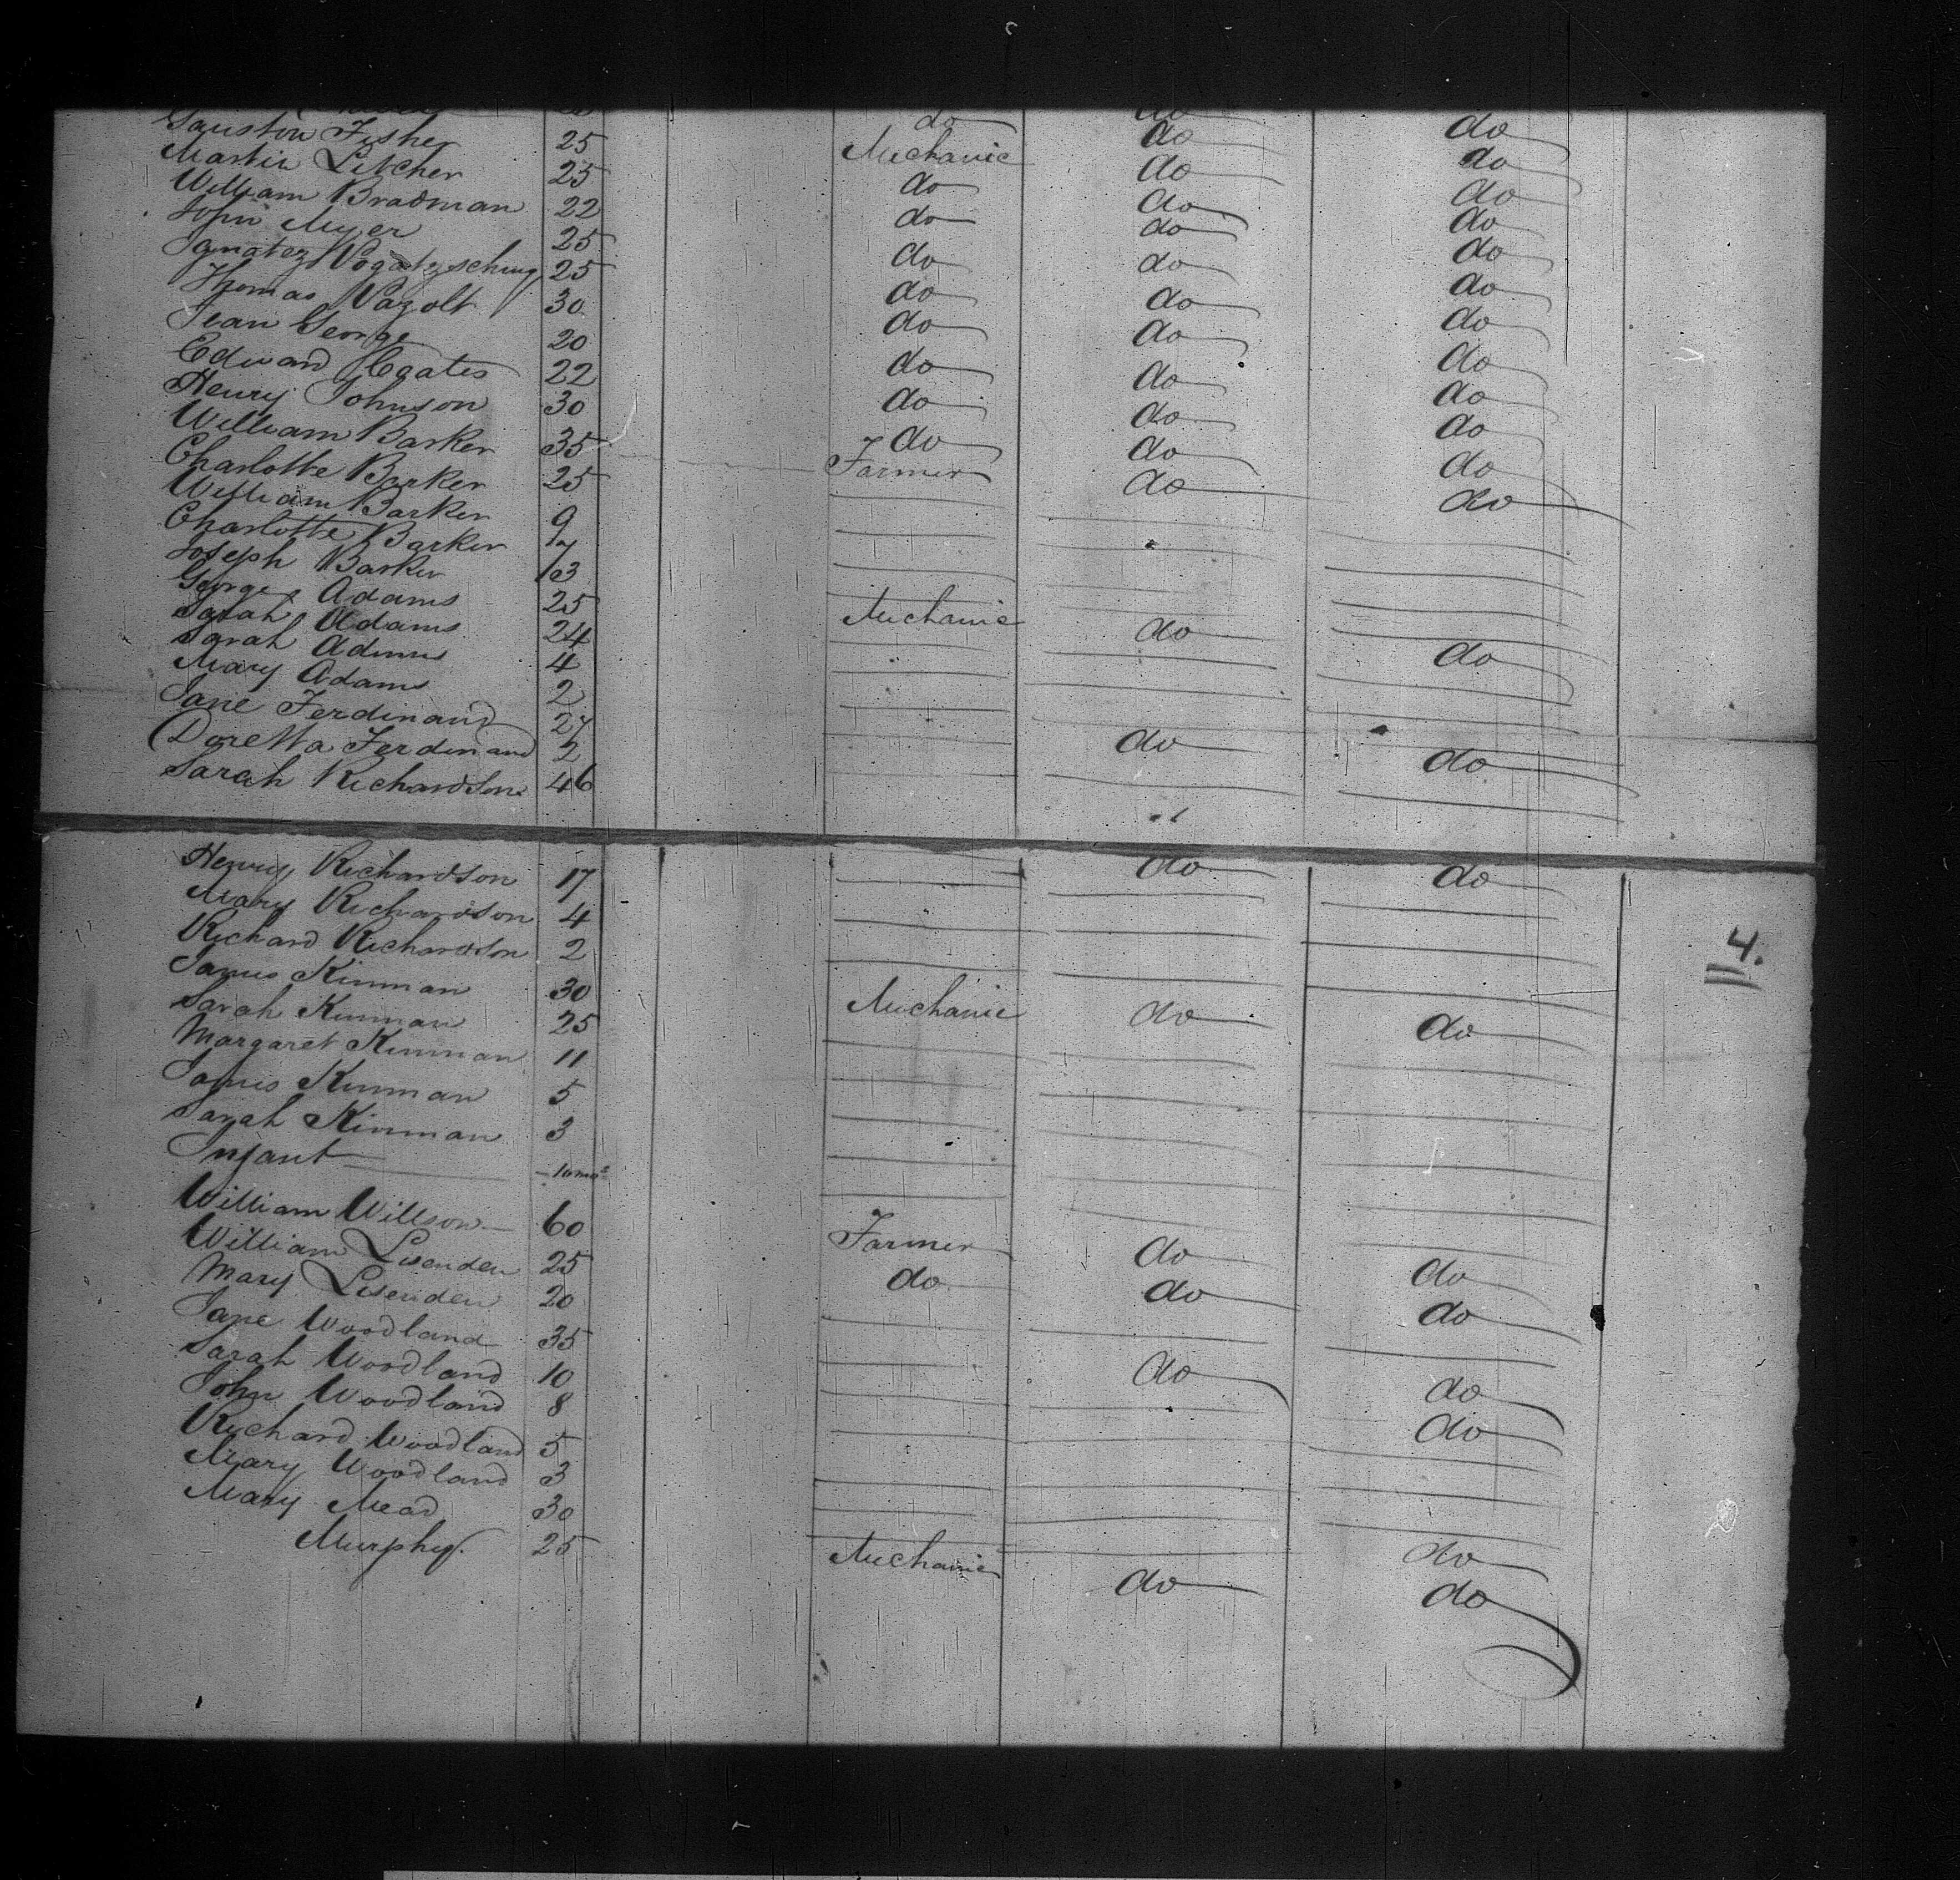 Fisher 25 do do do
Martin Litcher 25 Mechanic do do
William Bradman 22 do do do
John Myer 25 do do do
Ignatez 25 do do do
Thomas Vazolt 30 do do do
Jean George 20 do do do
Edward Coates 22 do do do
Henry Johnson 30 do do do
William Barker 35 do do do
Charlotte Barker 25 Farmer do do
William Barker 9
Charlotte Barker 7
Joseph Barker 3
George Adams 25 Mechanic do do
Sarah Adams 24
Sarah Adams 4
Mary Adams 2
Jane Ferdinand 27 do do
Doretta Ferdinand 2
Sarah Richardson 46 do do
Henry Richardson 17
Mary Richardson 4
Richard Richardson 2
James Kinman 30 Mechanic do do
Sarah Kinman 25
Margaret Kinman 11
James Kinman 5
Sarah Kinman 3
Infant 10 mos
William Willson 60 Farmer do do
William Lisenden 25 do do do
Mary Lisenden 20
Jane Woodland 35 do do
Sarah Woodland 10 do
John Woodland 8
Richard Woodland 5
Mary Woodland 3
Mary Mead 30 do
Murphy. 25 Mechanic do do
4.